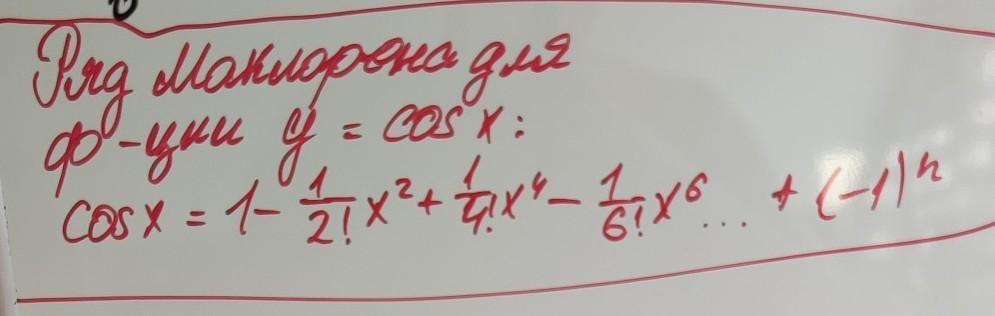 Ряд Маклорена для
ф-ции y = cos x:
cos x = 1 - \frac{1}{2!}x^2 + \frac{1}{4!}x^4 - \frac{1}{6!}x^6 ... + (-1)^n